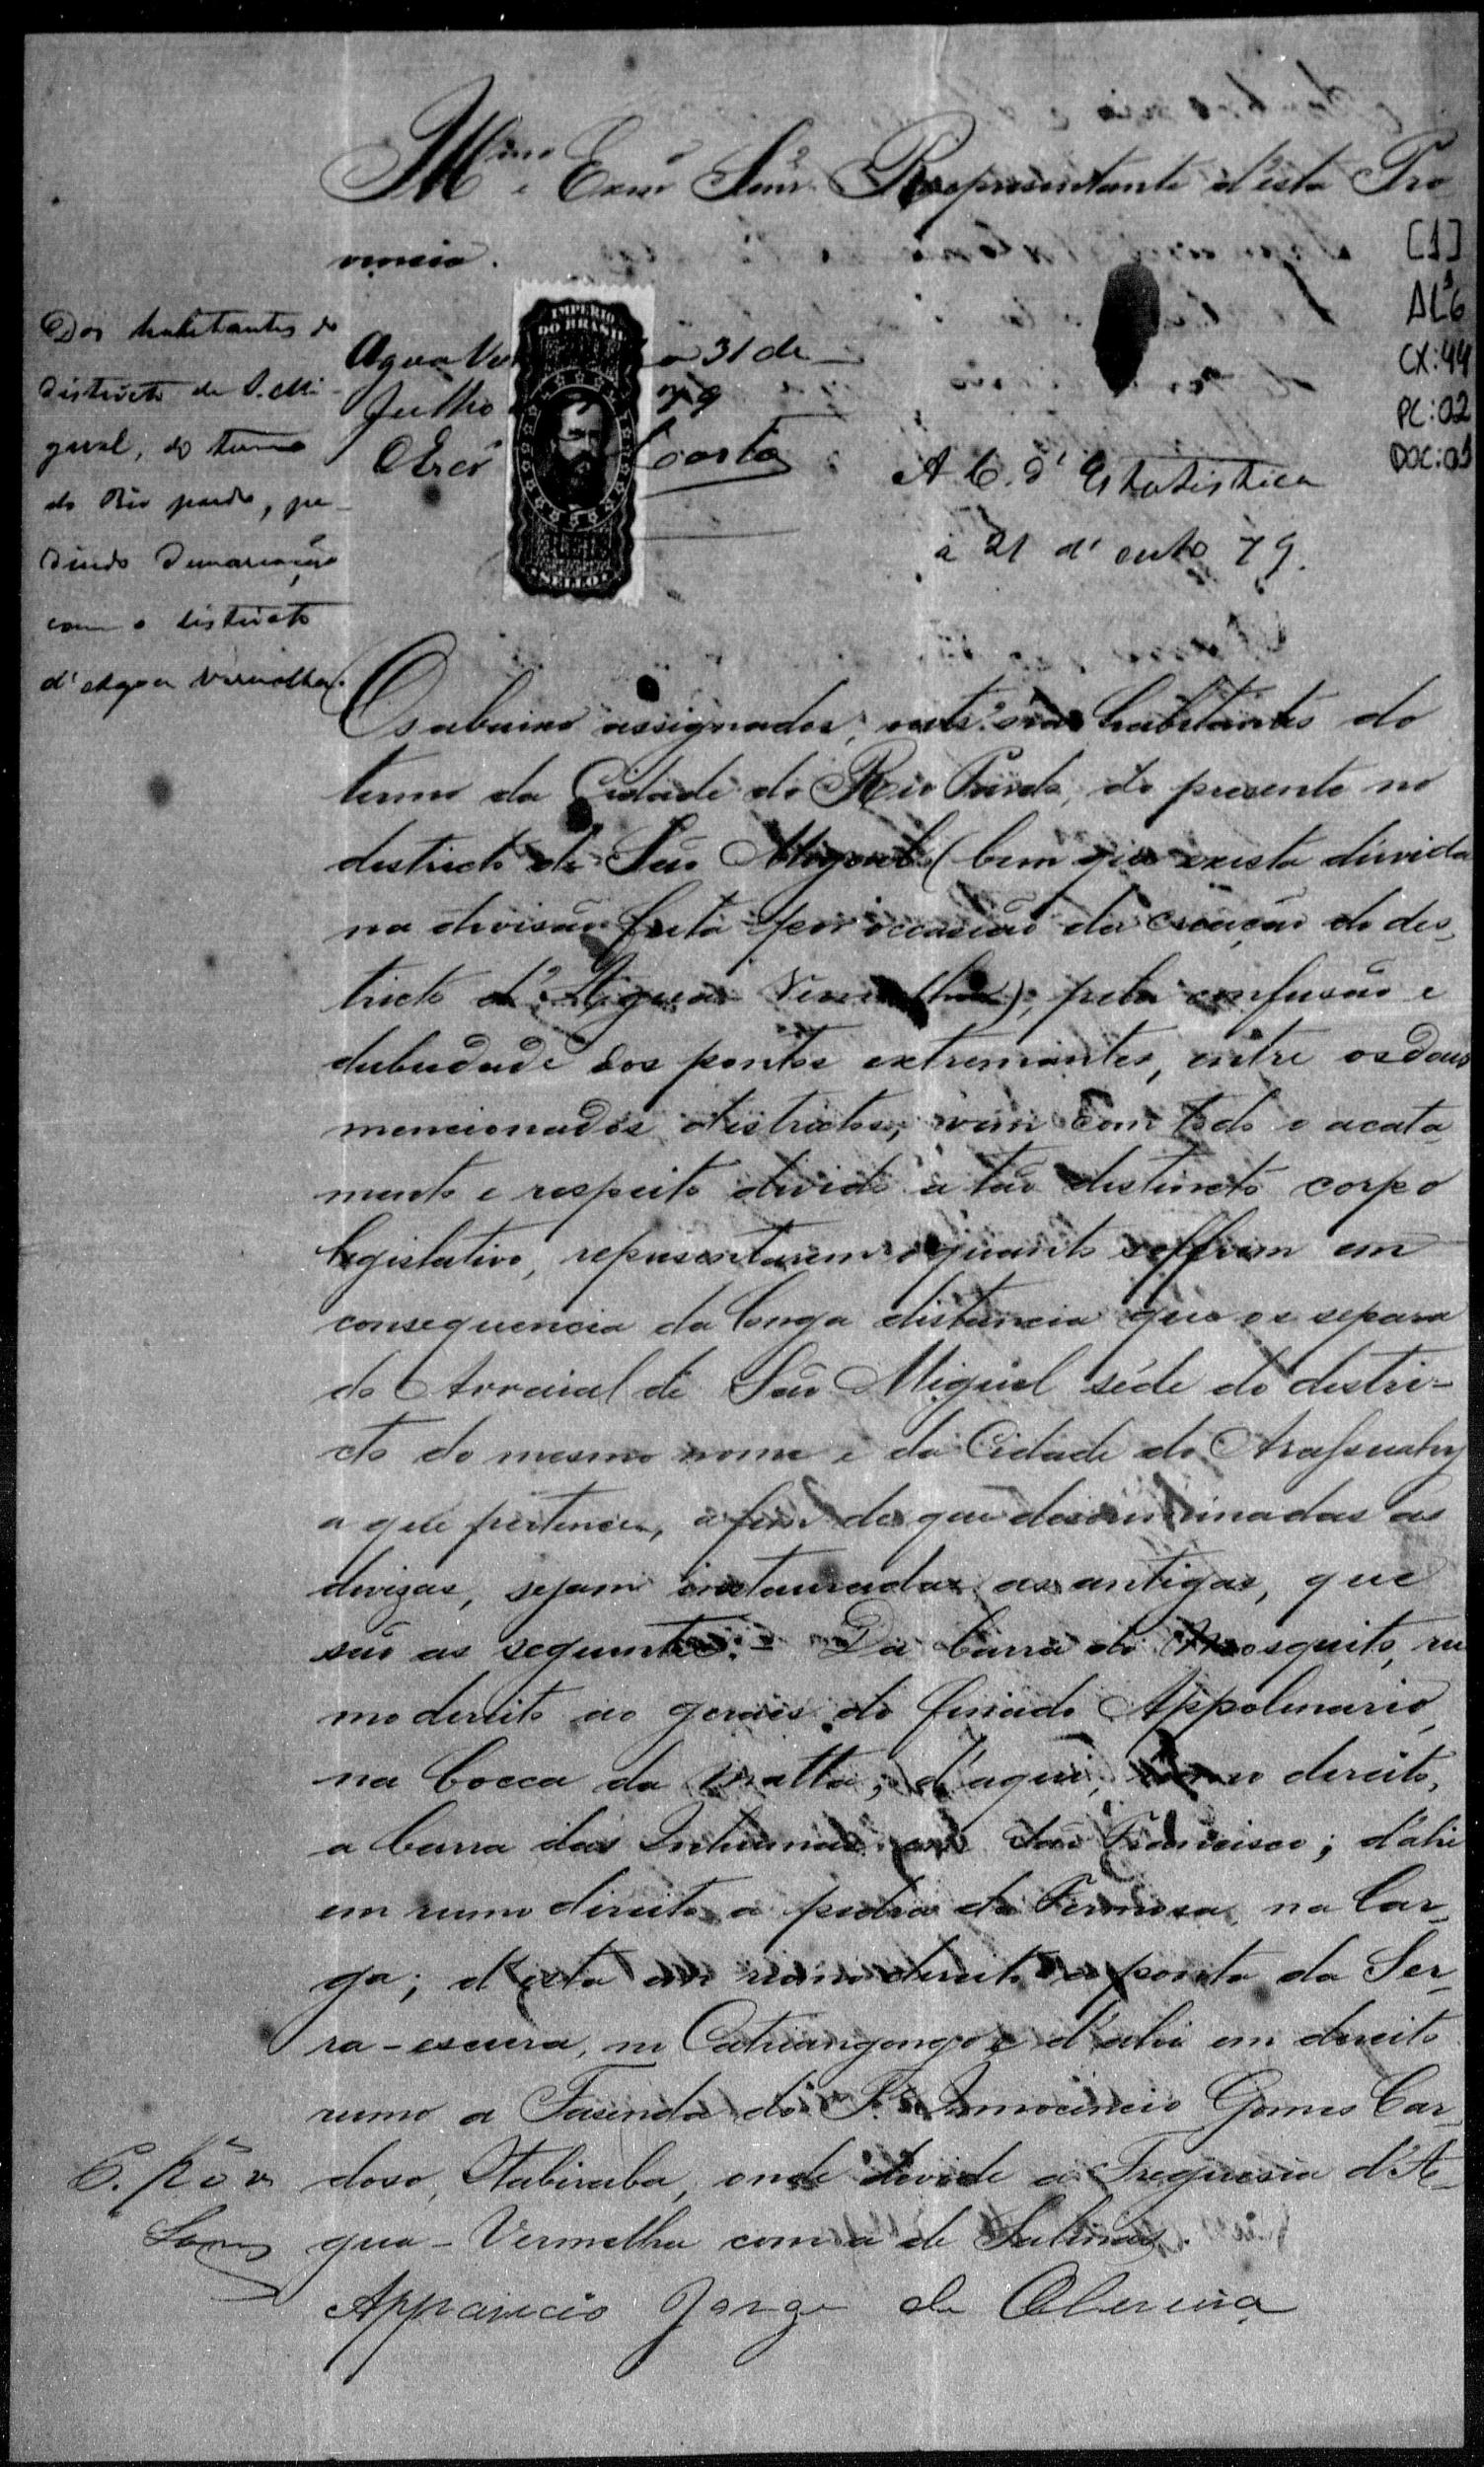 Illmo e Exmo Senr. Representante d'esta Pro
vincia.
[1]
AL6
CX:44
PC:02
DOC:01
Dos habitantes do
districto de S. Mi-
guel, do termo
do Rio pardo, pe-
dindo demarcação
com o districto
d'Agoa Vermelha.
IMPERIO
DO BRASIL
REIS
SELLO
Agua Ver a 31 de
Julho 79
Costa
A C. d'Estatistica
a 21 d' outo 79.
Os abaixo assignados, habitantes do
termo da Cidade do Rio Pardo, do presente no
destricto de São Miguel (bem que exista duvida
na divisão feita por occasião da creação do des-
tricto d'Agua Vermelha), pela confusão e
dubiedade dos pontos extremantes, entre os dous
mencionados destrictos, vem com todo o acata
mento e respeito devido a tão destincto corpo
legislativo, representarem o quanto soffrem em
consequencia da longa distancia que os separa
do Arraial de São Miguel séde do destri-
cto do mesmo nome e da Cidade do Arassuahy
a que pertence, a fim de que descriminadas as
devizas, sejam instauradas as antigas, que
são as seguintes: Da barra do Mosquito, ru
mo dereito ao geraes do finado Appolinario,
na bocca da matta; d'aqui, rumo dereito,
a barra das no São Francisco; d'ahi
em rumo direito a pedra da Formosa, na Var-
ge; d'esta em rumo direito a ponta da Ser-
ra-escura, no e d'ahi em dereito
rumo a Fazenda do Innocencio Gomes Car-
doso, Itabiraba, onde divide a Freguesia d'A-
gua-Vermelha com a de Salinas.
Apparicio Jorge de Oliveira